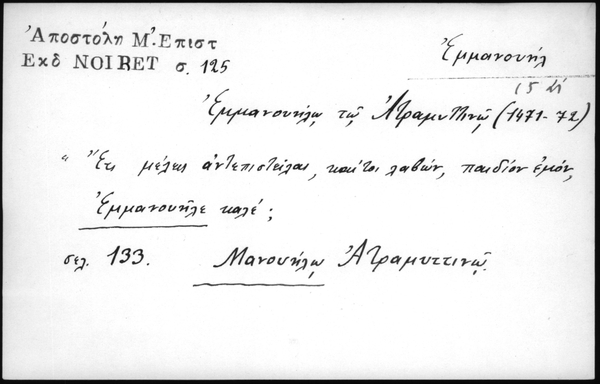 Ἀποστόλη Μ. Ἐπιστ
Εκδ NOIRET σ. 125
Ἐμμανουήλ
15 αἰ
Ἐμμανουήλῳ τῷ Ἀτραμυττινῷ (1471-72)
" Ἔτι μέλεις ἀντεπιστεῖλαι, καίτοι λαβών, παιδίον ἐμόν,
Ἐμμανουῆλε καλέ;
σελ. 133. Μανουήλῳ Ἀτραμυττινῷ.